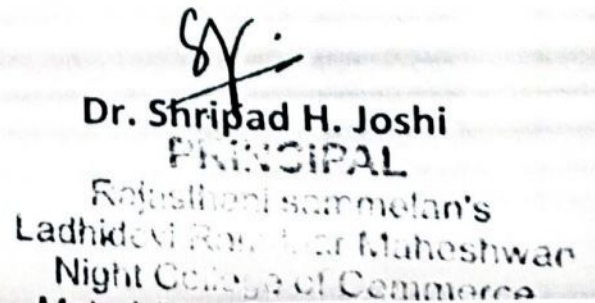 Dr. Shripad H. Joshi
PRINCIPAL
Rajasthani sammelan's
Ladhidevi Maheshwar
Night College of Commerce